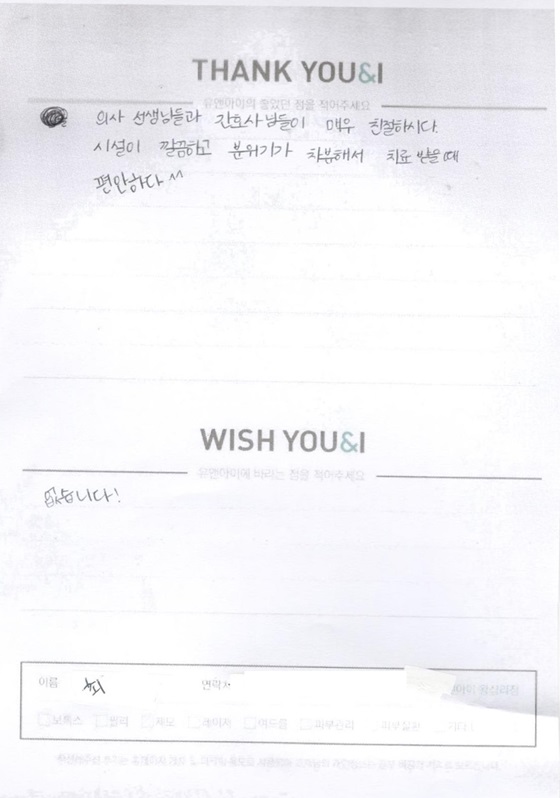 THANK YOU&I
유앤아이의 좋았던 점을 적어주세요
의사 선생님들과 간호사님들이 매우 친절하시다.
시설이 깔끔하고 분위기가 차분해서 치료 받을 때
편안하다 ^^
WISH YOU&I
유앤아이에 바라는 점을 적어주세요
없습니다!
이름 연락처 왕십리점
보톡스 필러 제모 레이저 여드름 피부관리 피부질환 기타